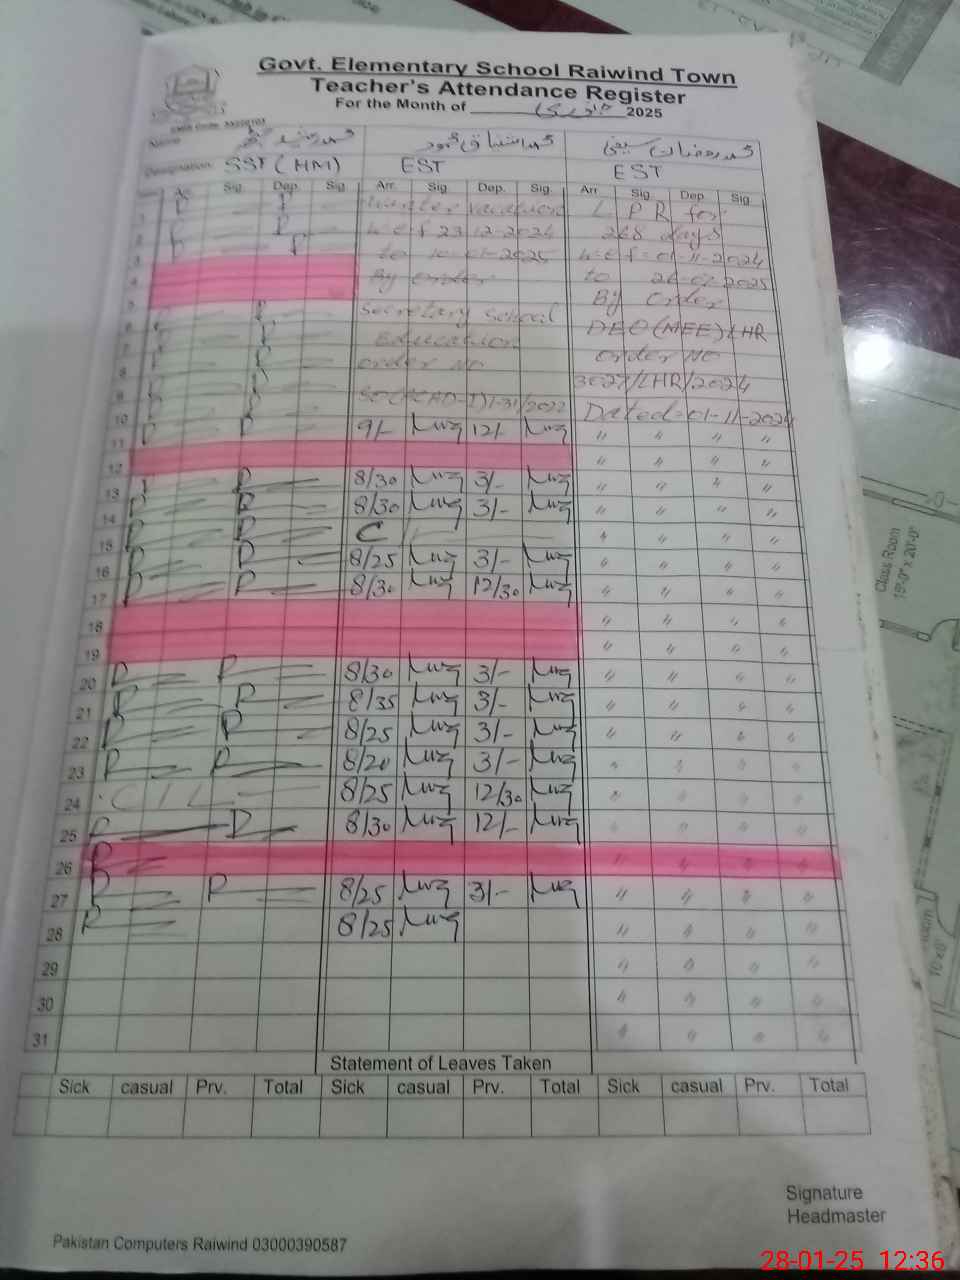 Govt. Elementary School Raiwind Town
Teacher's Attendance Register
For the Month of جنوری 2025
Name محمد اشتیاق محمود محمد رمضان سیفی
Designation SST (HM) EST EST
Arr. Sig. Dep. Sig. Arr. Sig. Dep. Sig. Arr. Sig. Dep. Sig.
1 P P Winter vacation L P R for
2 P P w.e.f 23-12-2024 268 days
3 to 10-01-2025 w.e.f = 01-11-2024
4 By order to 26-07-2025
5 Secretary School By order
6 Education DEO (MEE) LHR
7 order No order No
8 3027/LHR/2024
9 Dated = 01-11-2024
10 P P 9/- 12/- " " " "
11 " " " "
12 " " " "
13 P P 8/30 3/- " " " "
14 P P 8/30 3/- " " " "
15 P P C " " " "
16 P P 8/25 3/- " " " "
17 P P 8/30 12/30 " " " "
18 " " " "
19 " " " "
20 P P 8/30 3/- " " " "
21 P P 8/35 3/- " " " "
22 P P 8/25 3/- " " " "
23 P P 8/20 3/- " " " "
24 C/L 8/25 12/30 " " " "
25 P P 8/30 12/- " " " "
26 P " " " "
27 P P 8/25 3/- " " " "
28 P 8/25 " " " "
29 " " " "
30 " " " "
31 " " " "
Statement of Leaves Taken
Sick casual Prv. Total Sick casual Prv. Total Sick casual Prv. Total
Signature
Headmaster
Pakistan Computers Raiwind 03000390587
28-01-25 12:36
Class Room